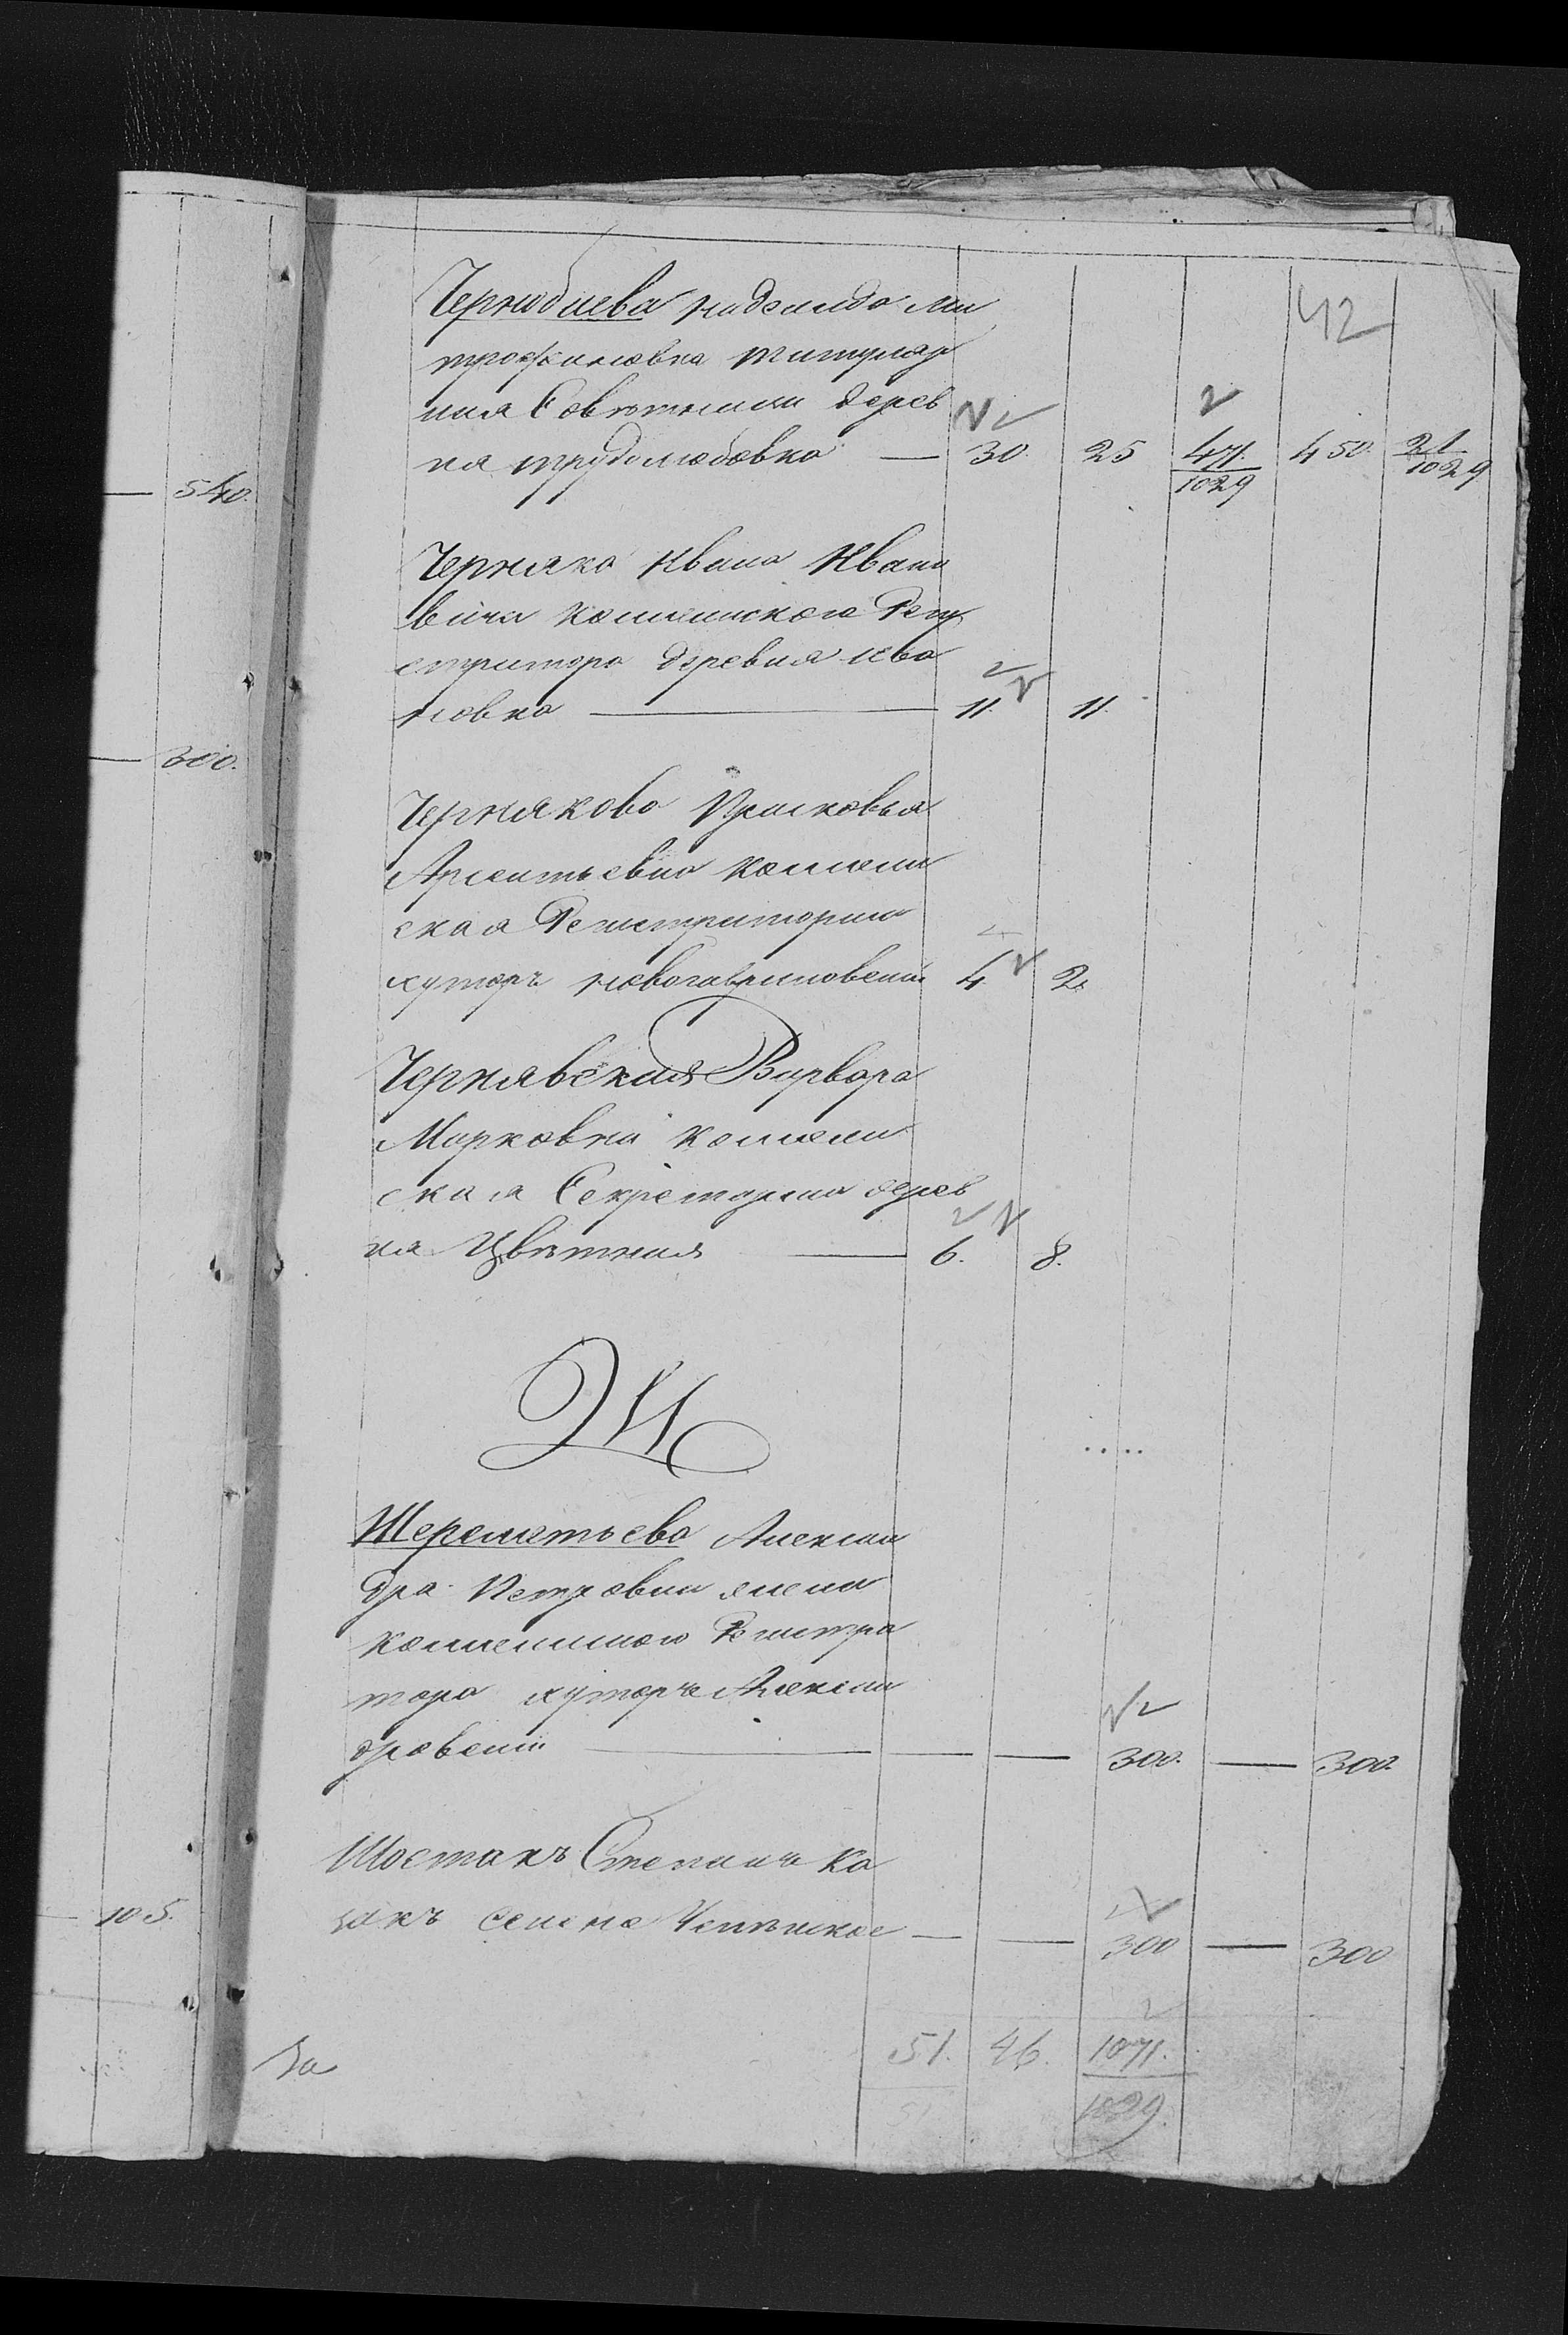 42
Надежда Ми
трофановна титуляр
ная Совѣтница дерев
ня трудолюбовка — 30. 25 471. 450. 21
1029 1029
540.
Черняко Ивана Ивано
вича Коллежскаго Реги
стратора деревня ива
новка — 11. 11.
300.
Чернякова Прасковья
Арсентьевна Коллеж
ская Регистраторша
хуторъ 4 2.
Чернявская Варвара
Марковна Коллеж
ская Секретарша дерев
ня Цвѣтная — 6. 8.
Ш
Шереметьева Алексан
дра Петровна жена
Коллежскаго Регистра
тора хуторъ Алексан
дровскій — — — 300. — 300.
Шостакъ Степанъ Ка
закъ селеніе — — 300 — 300
105.
51. 46. 1071.
1029.
За